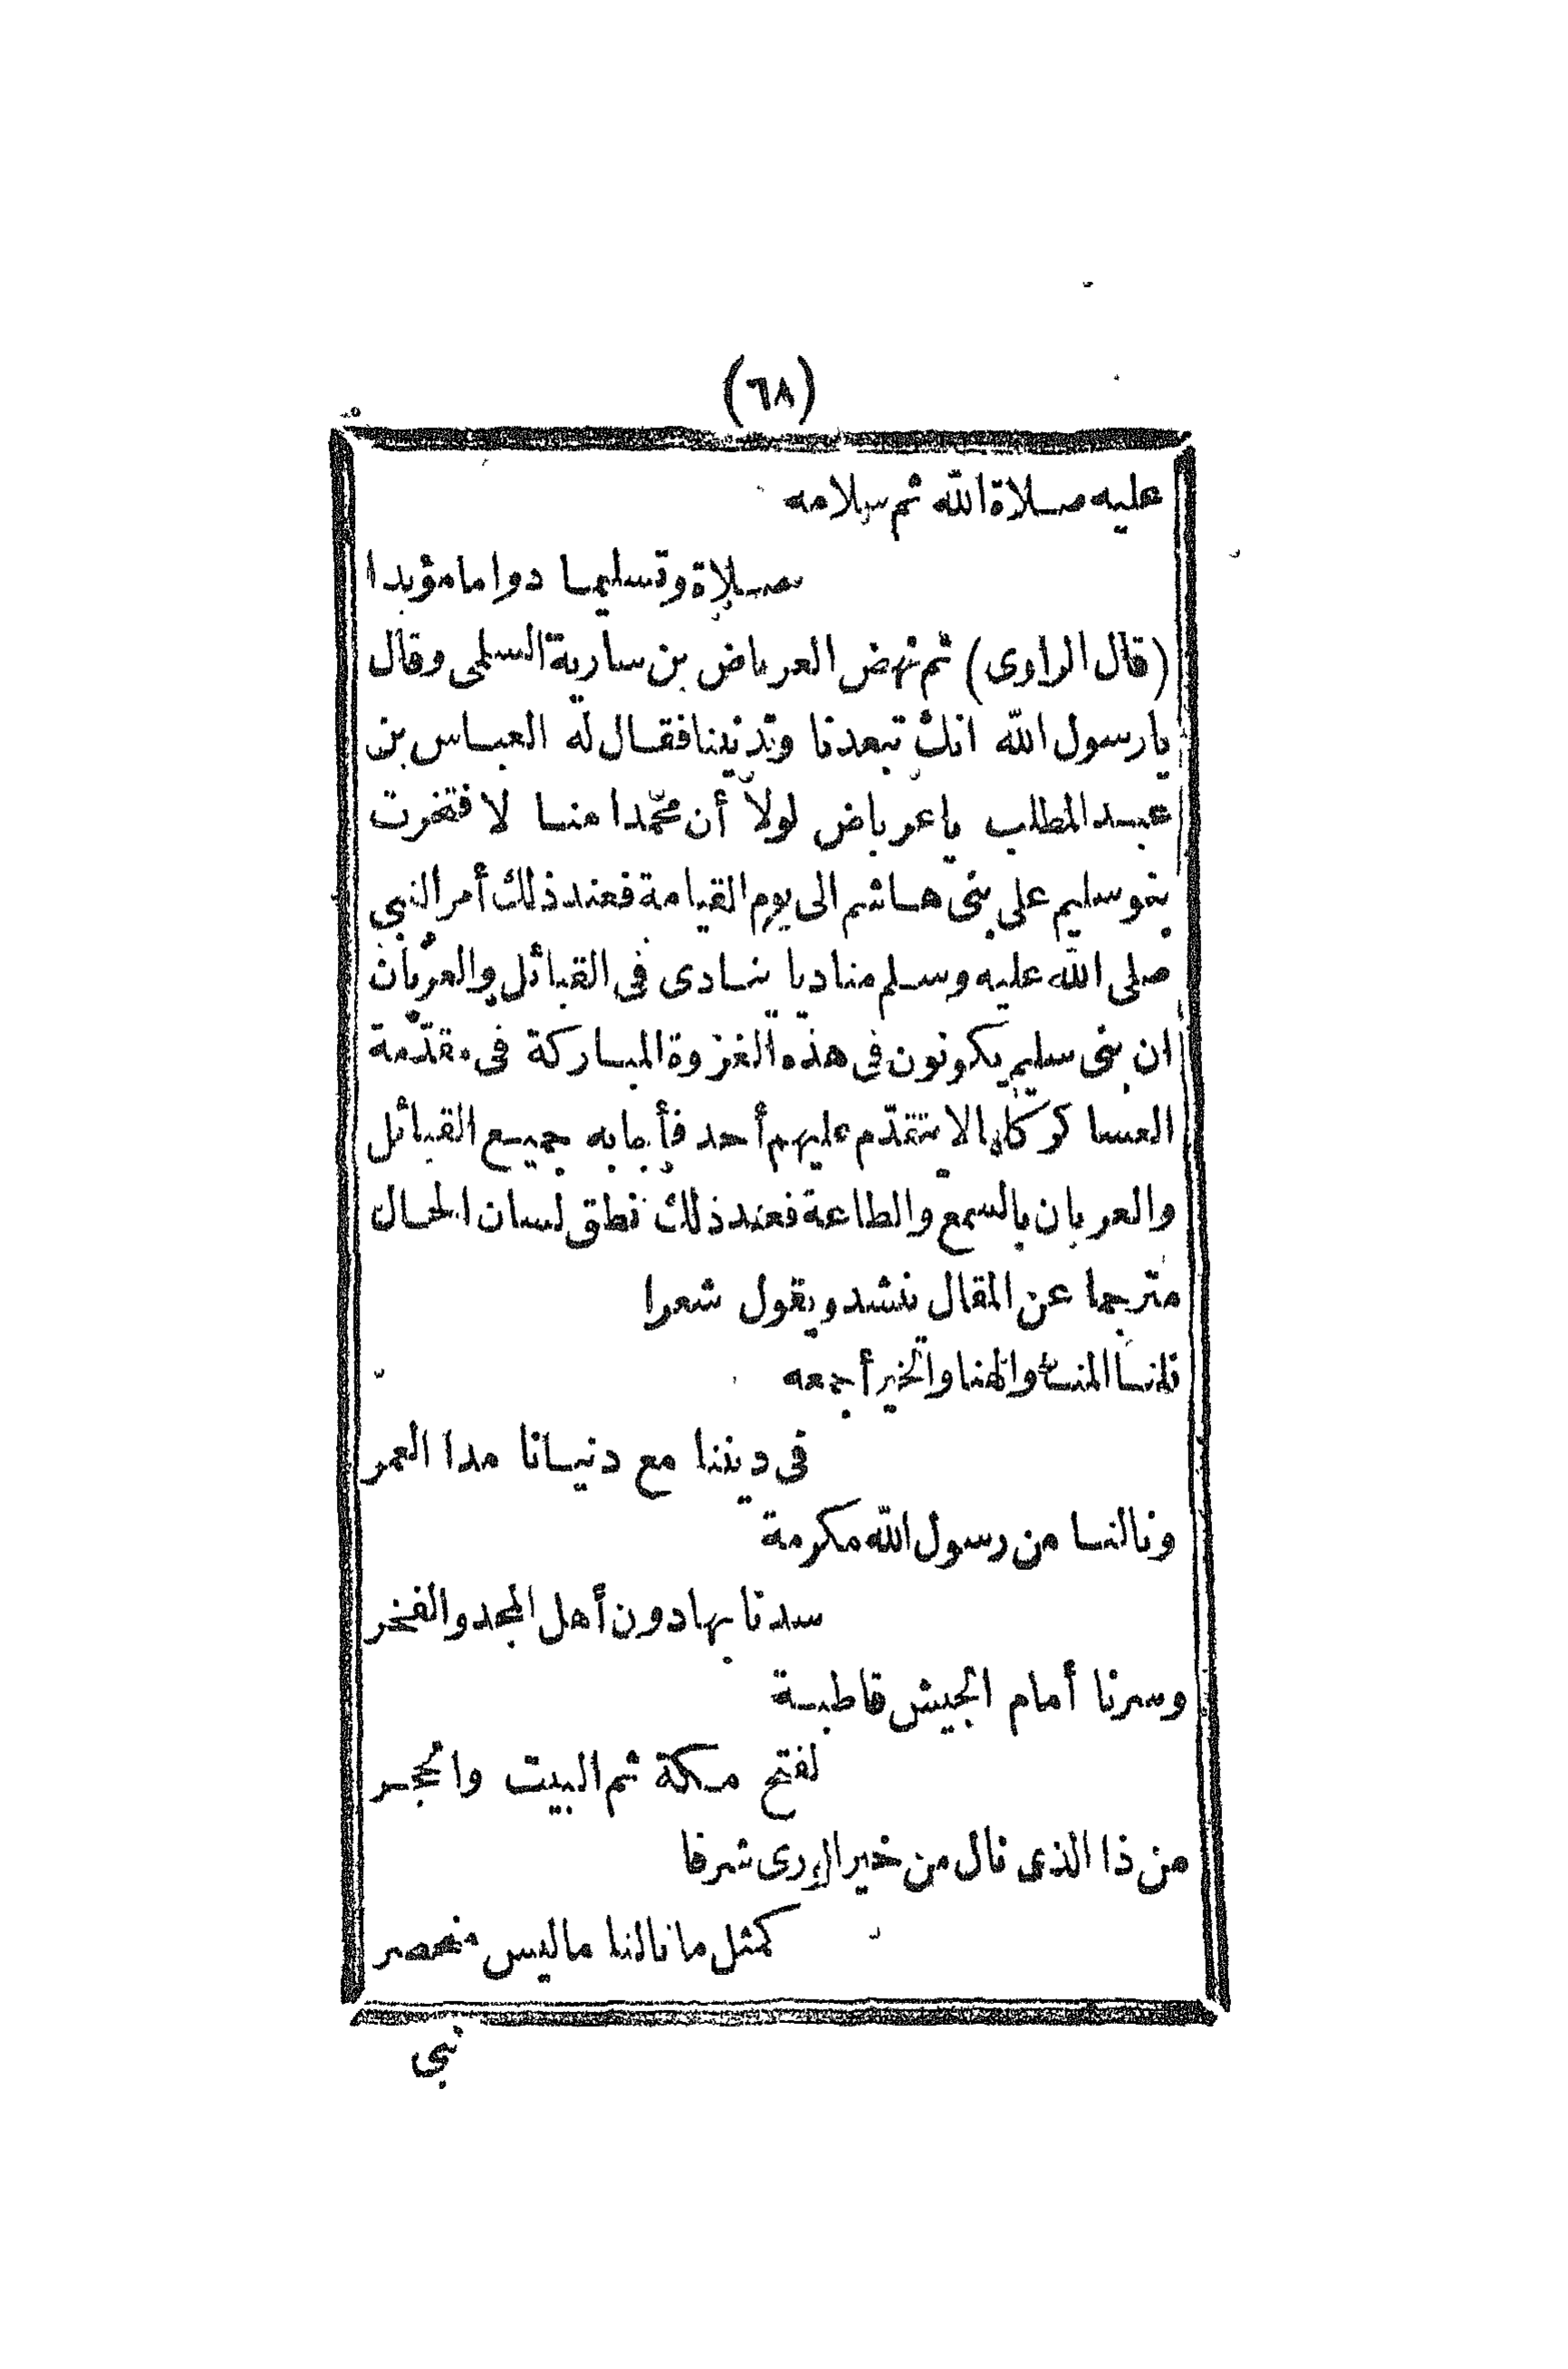 (٦٨)
عليه صلاة الله ثم سلامه
صلاة وتسليما دواما مؤبدا
(قال الراوى) ثم نهض العرباض بن سارية السلمى وقال
يا رسول الله انك تبعدنا وتدنيننا فقال له العباس بن
عبد المطلب يا عرباض لولا أن محمّدا منا لافتخرت
بنو سليم على بنى هاشم الى يوم القيامة فعند ذلك أمر النبي
صلى الله عليه وسلم مناديا ينادى فى القبائل والعربان
ان بنى سليم يكونون فى هذه الغزوة المباركة فى مقدّمة
العساكر كلها لا يتقدّم عليهم أحد فأجابه جميع القبائل
والعربان بالسمع والطاعة فعند ذلك نطق لسان الحال
مترجما عن المقال ينشد ويقول شعرا
نلنا المنا والهنا والخير أجمعه
فى ديننا مع دنيانا مدا العمر
ونالنا من رسول الله مكرمة
سدنا بها دون أهل المجد والفخر
وسرنا أمام الجيش قاطبة
لفتح مكة ثم البيت والحجر
من ذا الذى نال من خير الورى شرفا
كمثل ما نالنا ما ليس منحصر
نبي